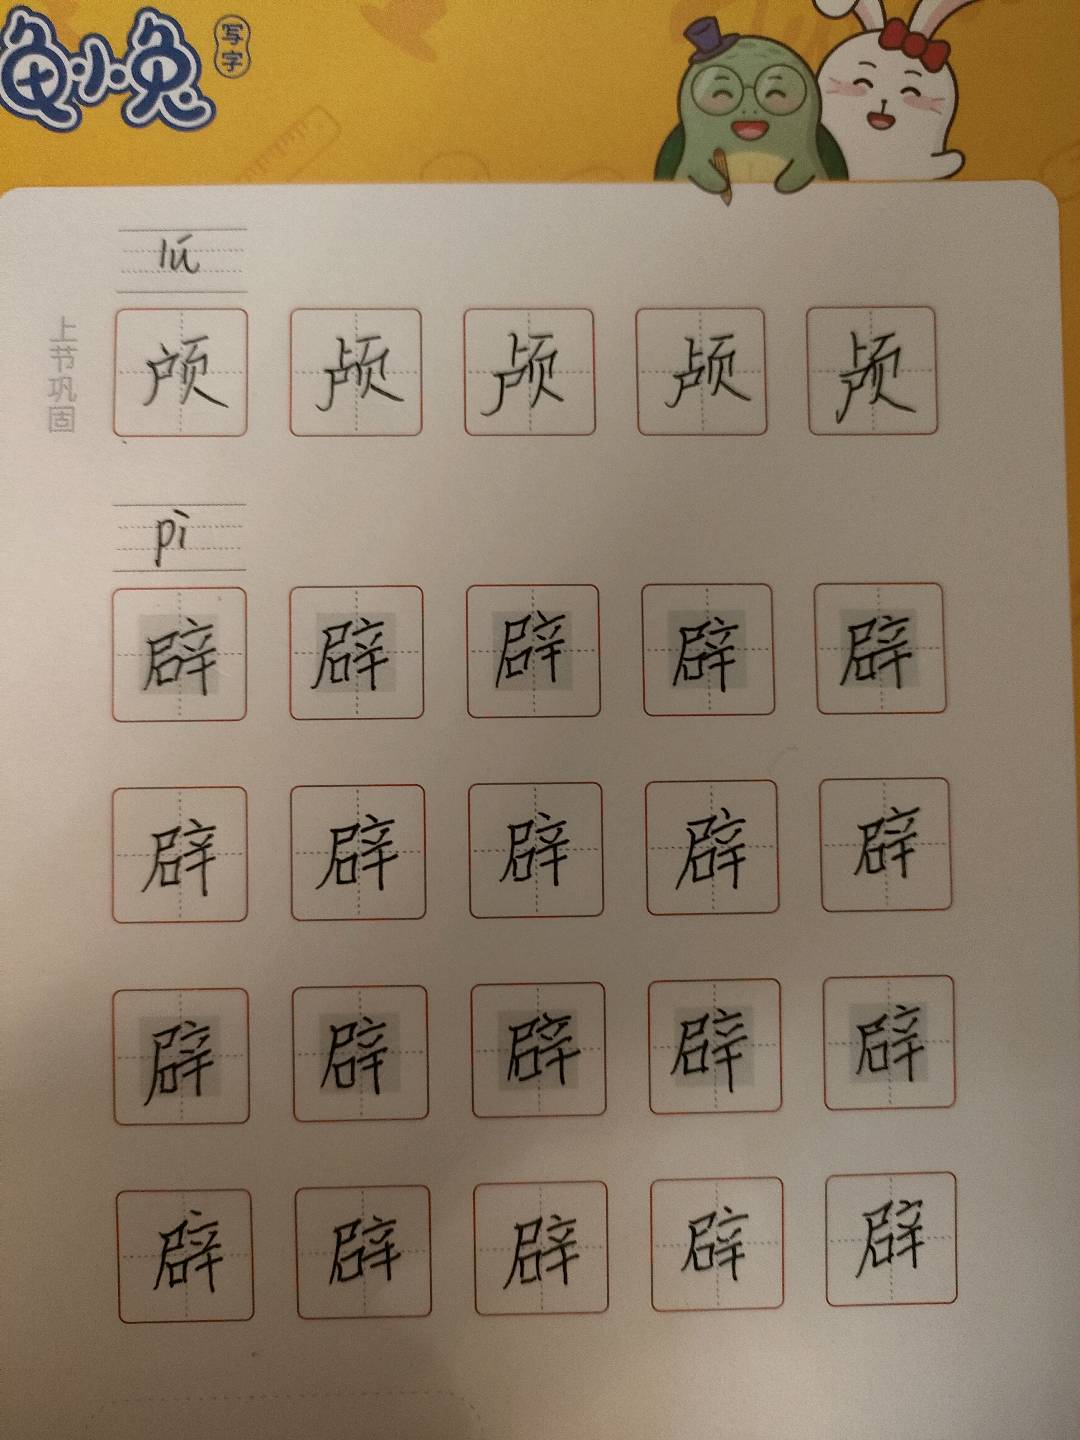 龟小兔
写字
lú
上节巩固
颅 颅 颅 颅 颅
pì
辟 辟 辟 辟 辟
辟 辟 辟 辟 辟
辟 辟 辟 辟 辟
辟 辟 辟 辟 辟